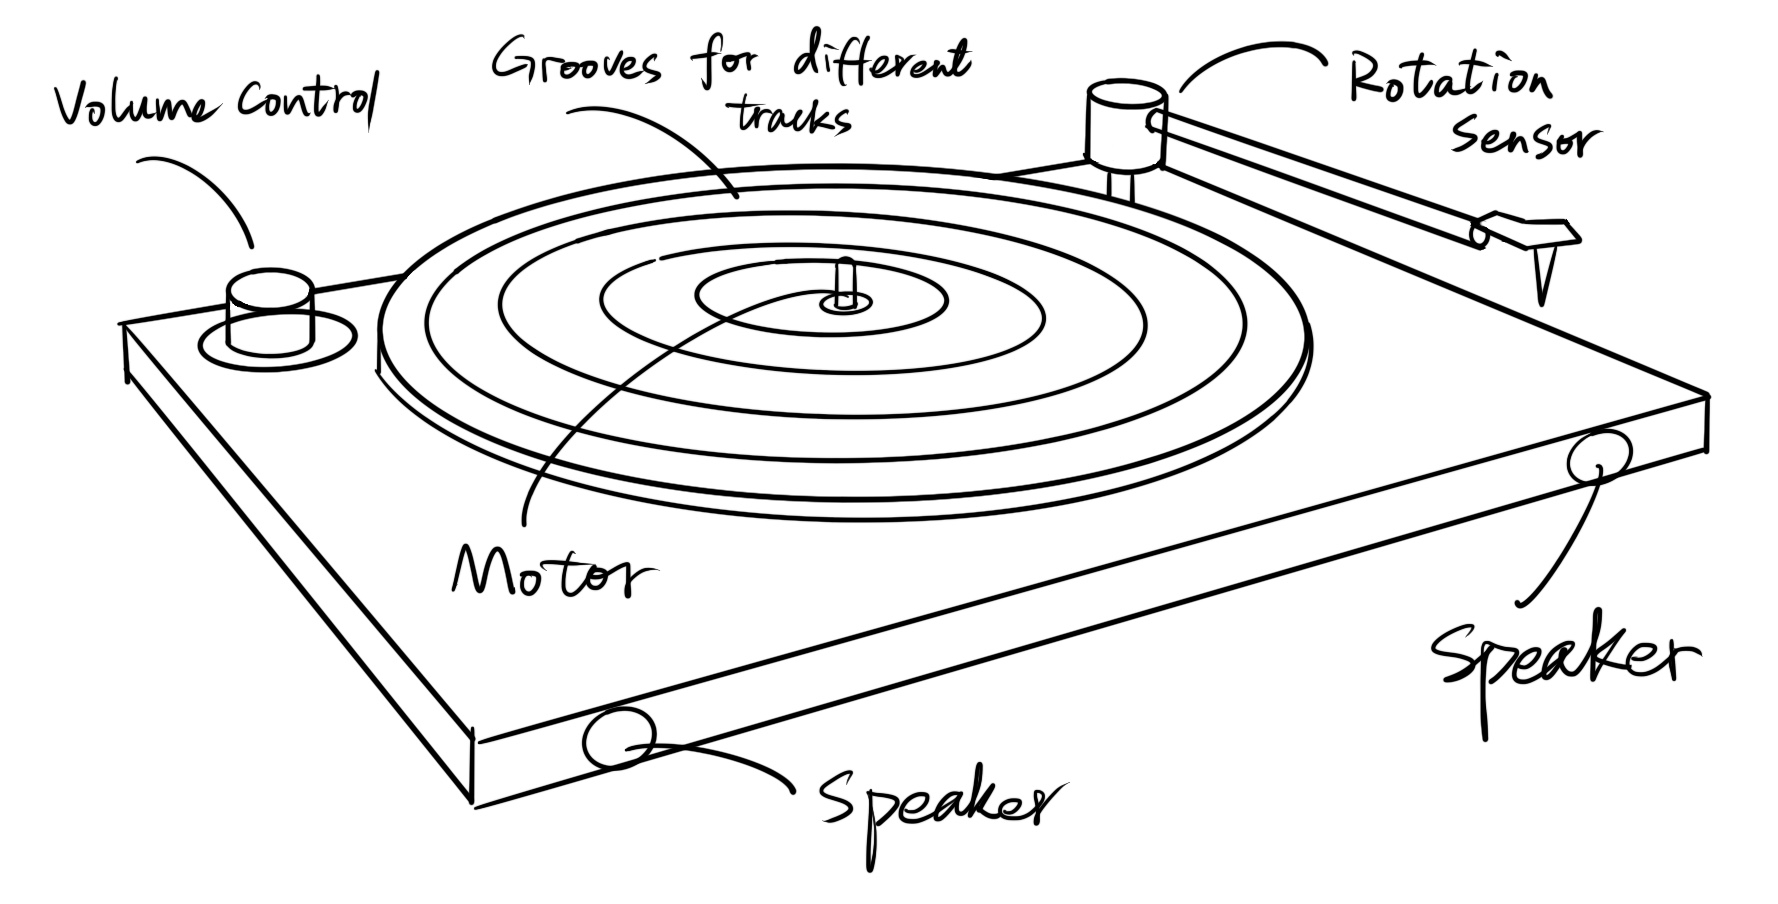 Volume Control
Grooves for different
tracks
Rotation
Sensor
Motor
Speaker
Speaker